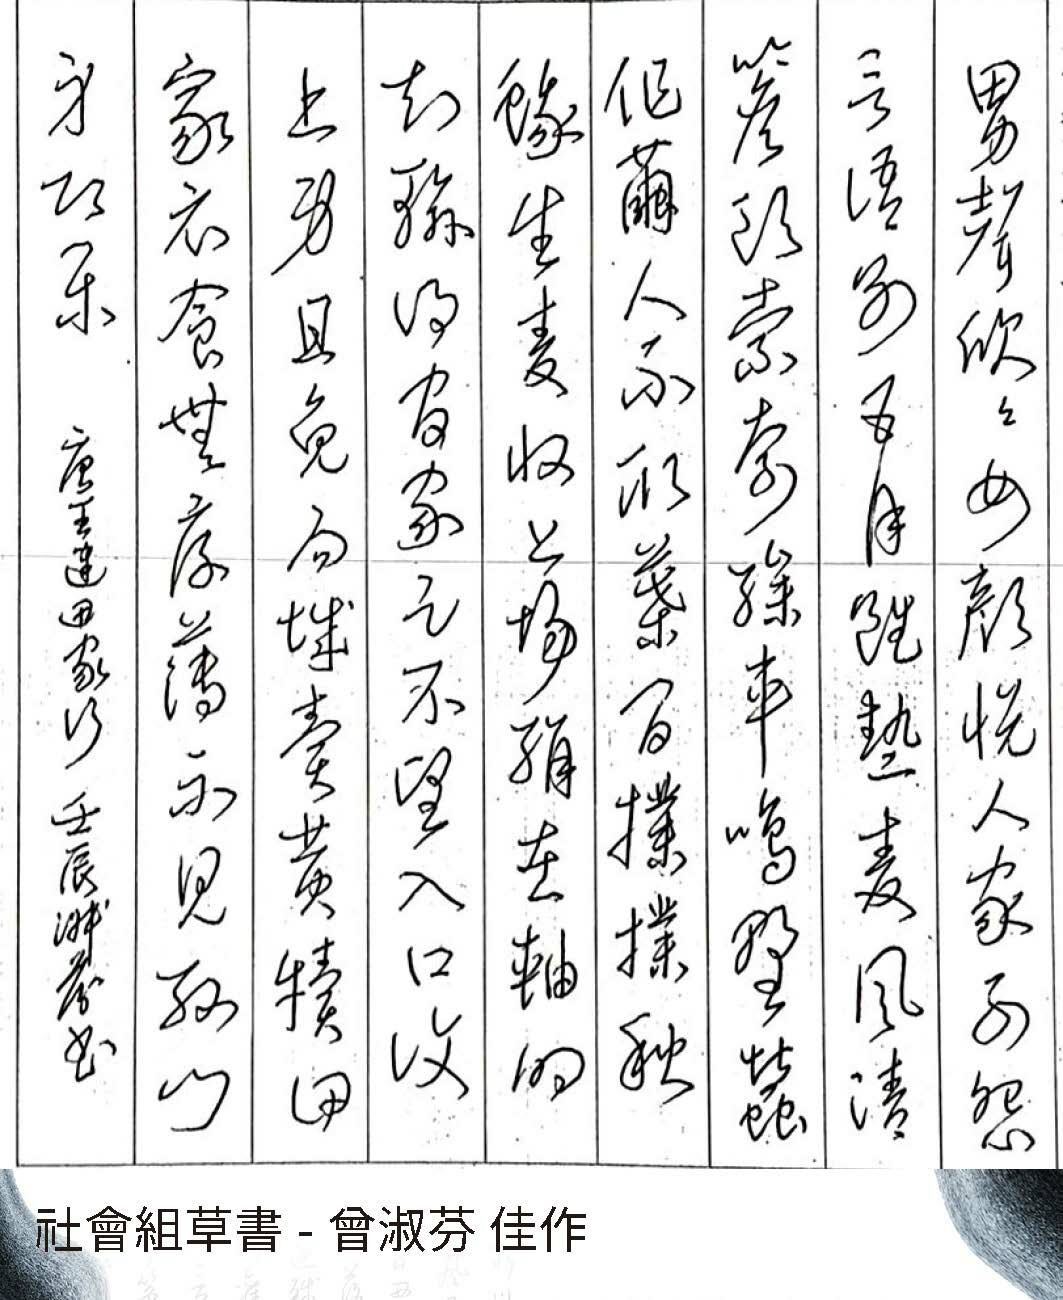 男聲欣欣女顏悅人家不怨
言語別五月雖熱麥風清
簷頭索索繰車鳴野蠶
作繭人不取葉間撲撲秋
蛾生麥收上場絹在軸的
知輸得官家足不望入口復
上身且免向城賣黃犢田
家衣食無厚薄不見縣門
身即樂 唐王建田家行 壬辰淑芬書
社會組草書 - 曾淑芬 佳作